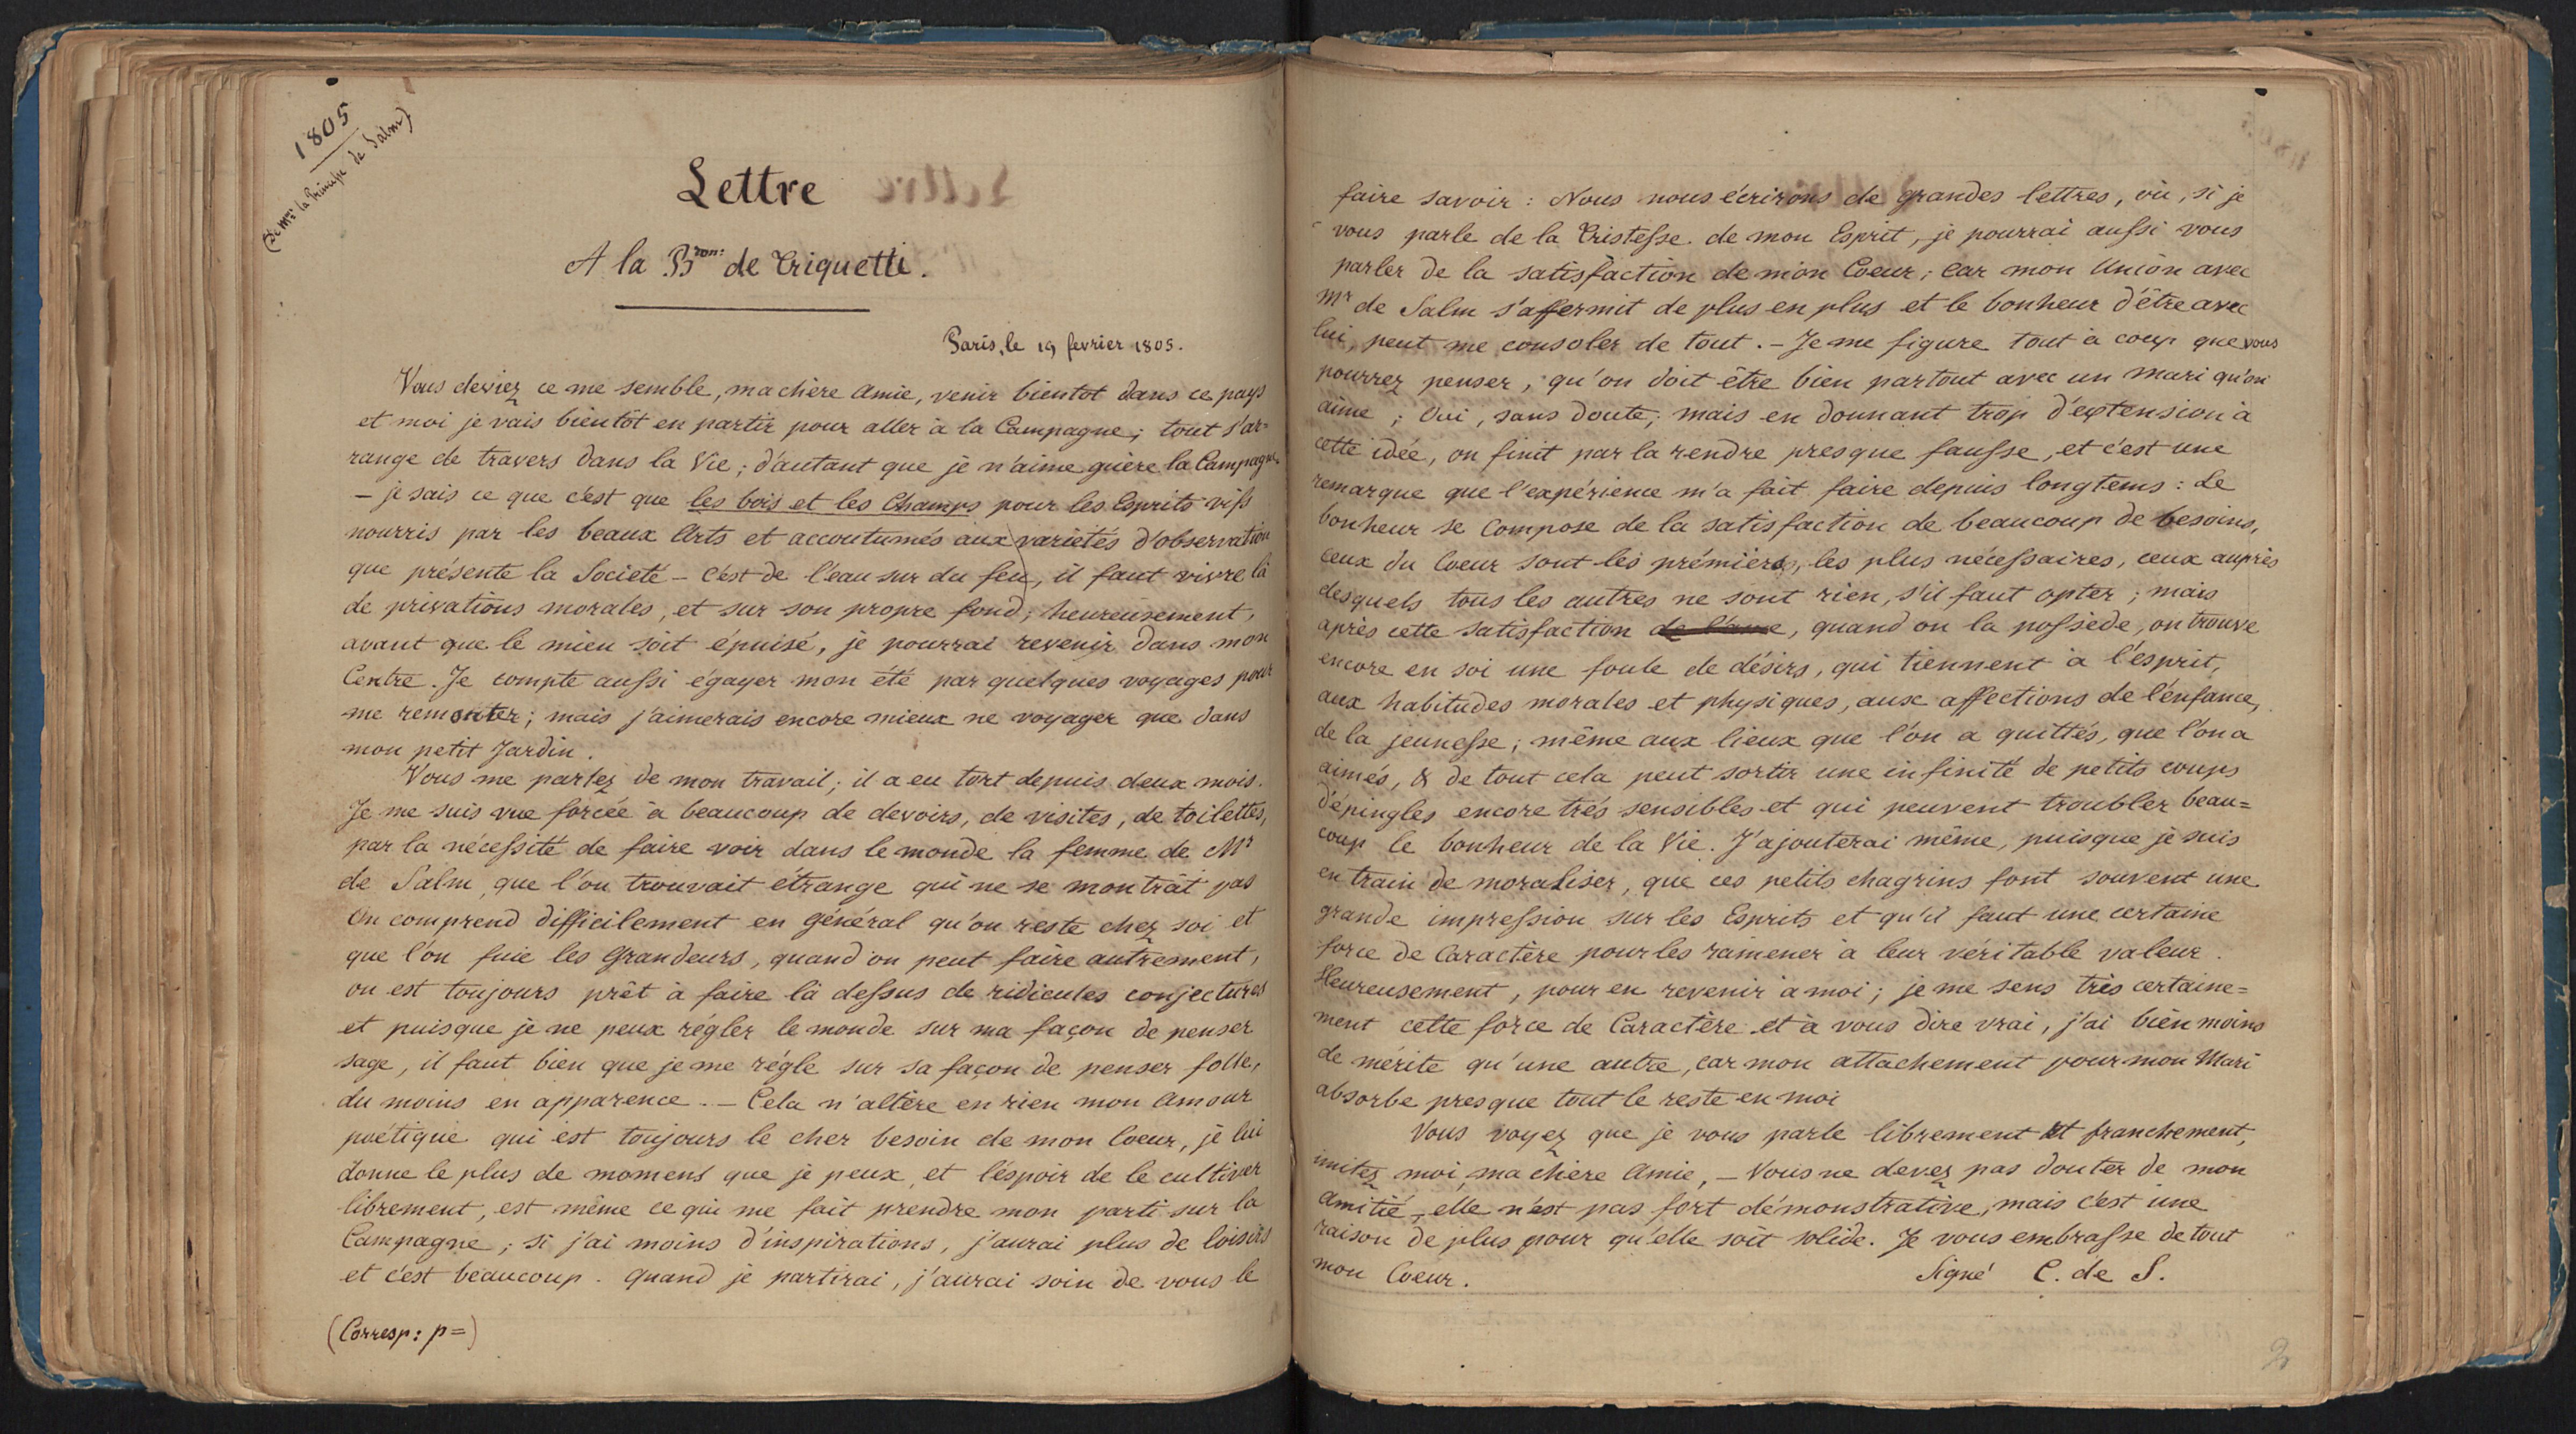 1805
(de Mme la Princesse de Salm)
Lettre
A la Bronne de Triquetti.
Paris, le 19 fevrier 1805.
Vous deviez ce me semble, ma chère Amie, venir bientot dans ce pays
et moi je vais bientôt en partir pour aller à la Campagne; tout s'ar=
range de travers dans la Vie; d'autant que je n'aime guère la Campagne
– je sais ce que c'est que les bois et les Champs pour les Esprits vifs
nourris par les beaux Arts et accoutumés aux variétés d'observation
que présente la Societé – C'est de l'eau sur du feu, il faut vivre là
de privations morales, et sur son propre fond; heureusement,
avant que le mien soit épuisé, je pourrai revenir dans mon
Centre. Je compte aussi égayer mon été par quelques voyages pour
me remonter; mais j'aimerais encore mieux ne voyager que dans
mon petit Jardin.
Vous me parlez de mon travail; il a eu tort depuis deux mois.
Je me suis vue forcée à beaucoup de devoirs, de visites, de toilettes,
par la nécessité de faire voir dans le monde la femme de Mr
de Salm, que l'on trouvait étrange qui ne se montrât pas
On comprend difficilement en général qu'on reste chez soi et
que l'on fuie les Grandeurs, quand on peut faire autrement,
on est toujours prêt à faire là dessus de ridicules conjectures
et puisque je ne peux régler le monde sur ma façon de penser
sage, il faut bien que je me règle sur sa façon de penser folle,
du moins en apparence. – Cela n'altère en rien mon Amour
poëtique qui est toujours le cher besoin de mon Coeur, je lui
donne le plus de momens que je peux, et l'éspoir de le cultiver
librement, est même ce qui me fait prendre mon parti sur la
Campagne; si j'ai moins d'inspirations, j'aurai plus de loisirs
et c'est beaucoup. Quand je partirai, j'aurai soin de vous le
(Corresp: p=)
faire savoir: Nous nous écrirons de grandes lettres, où, si je
vous parle de la Tristesse de mon Esprit, je pourrai aussi vous
parler de la satisfaction de mon Coeur; Car mon Union avec
Mr de Salm s'affermit de plus en plus et le bonheur d'être avec
lui, peut me consoler de tout. – Je me figure tout à coup que vous
pourrez penser, qu'on doit être bien partout avec un mari qu'on
aime; Oui, sans doute; mais en donnant trop d'extension à
cette idée, on finit par la rendre presque fausse, et c'est une
remarque que l'expérience m'a fait faire depuis longtems: Le
bonheur se compose de la satisfaction de beaucoup de besoins,
ceux du Coeur sont les prémiers, les plus nécessaires, ceux auprès
desquels tous les autres ne sont rien, s'il faut opter; mais
après cette satisfaction de l'ame, quand on la possède, on trouve
encore en soi une foule de désirs, qui tiennent à l'ésprit,
aux habitudes morales et physiques, aux affections de l'enfance,
de la jeunesse; même aux lieux que l'on a quittés, que l'on a
aimés, & de tout cela peut sortir une infinité de petits coups
d'épingles encore très sensibles et qui peuvent troubler beau=
coup le bonheur de la Vie. J'ajouterai même, puisque je suis
en train de moraliser, que ces petits chagrins font souvent une
grande impression sur les Esprits et qu'il faut une certaine
force de Caractère pour les ramener à leur véritable valeur.
Heureusement, pour en revenir à moi; je me sens très certaine=
ment cette force de Caractère et à vous dire vrai, j'ai bien moins
de mérite qu'une autre, car mon attachement pour mon Mari
absorbe presque tout le reste en moi
Vous voyez que je vous parle librement et franchement,
imitez moi, ma chère Amie, – Vous ne devez pas douter de mon
Amitié, elle n'est pas fort démonstrative, mais c'est une
raison de plus pour qu'elle soit solide. Je vous embrasse de tout
mon Coeur.
Signé C. de S.